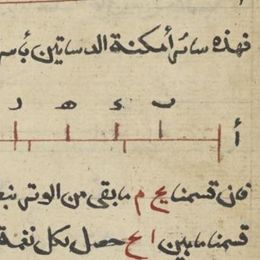 فهذه سائر أمكنة الدساتين بأسر
ب ء ه د
أ
فان قسمنا يح م ما بقى من الوتر
قسمنا ما بين ا ح حصل لكل نغمة